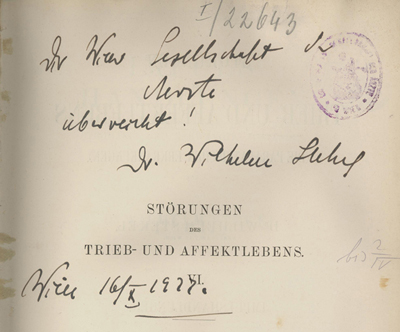 I/22643
Der Wiener Gesellschaft d.
Aerzte
überreicht!
Dr. Wilhelm Stekel
STÖRUNGEN
DES
TRIEB- UND AFFEKTLEBENS.
VI.
bis 2/IV
Wien 16/X 1927.